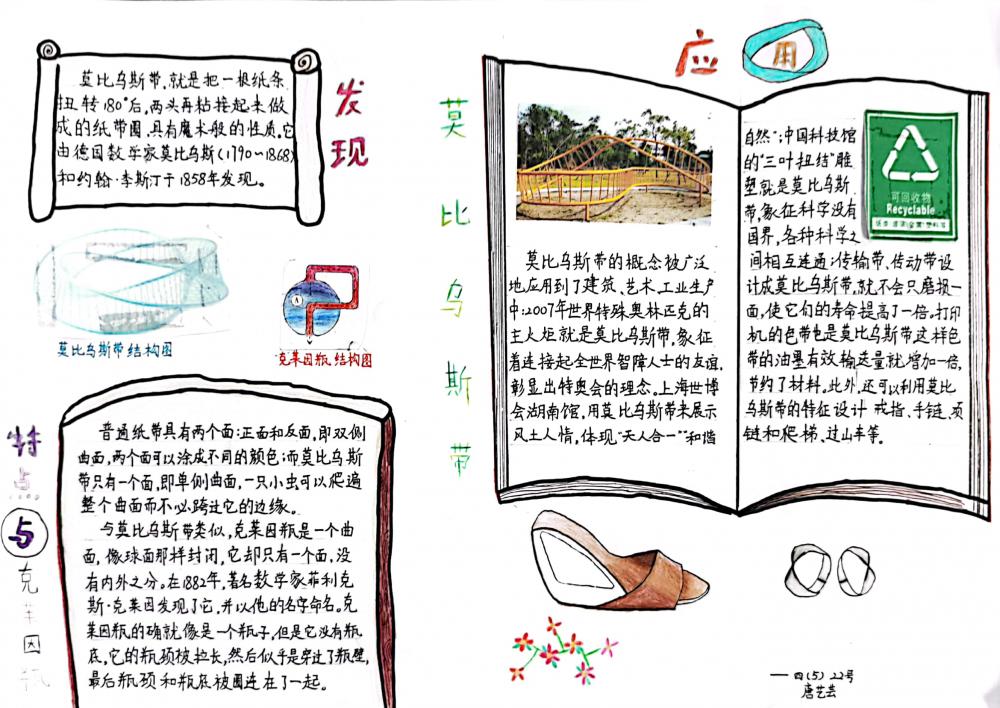 发现
莫比乌斯带,就是把一根纸条
扭转180°后,两头再粘接起来做
成的纸带圈,具有魔术般的性质。它
由德国数学家莫比乌斯(1790~1868)
和约翰·李斯汀于1858年发现。
莫比乌斯带结构图
A
克莱因瓶结构图
特点与克莱因瓶
普通纸带具有两个面:正面和反面,即双侧
曲面,两个面可以涂成不同的颜色;而莫比乌斯
带只有一个面,即单侧曲面,一只小虫可以爬遍
整个曲面而不必跨过它的边缘。
与莫比乌斯带类似,克莱因瓶是一个曲
面,像球面那样封闭,它却只有一个面,没
有内外之分。在1882年,著名数学家菲利克
斯·克莱因发现了它,并以他的名字命名。克
莱因瓶的确就像是一个瓶子,但是它没有瓶
底,它的瓶颈被拉长,然后似乎是穿过了瓶壁,
最后瓶颈和瓶底被圈连在了一起。
莫比乌斯带
应用
莫比乌斯带的概念被广泛
地应用到了建筑、艺术、工业生产
中:2007年世界特殊奥林匹克的
主火炬就是莫比乌斯带,象征
着连接起全世界智障人士的友谊,
彰显出特奥会的理念。上海世博
会湖南馆,用莫比乌斯带来展示
风土人情,体现“天人合一”“和谐
自然”;中国科技馆
的“三叶扭结”雕
塑就是莫比乌斯
带,象征科学没有
国界,各种科学之
间相互连通;传输带、传动带设
计成莫比乌斯带,就不会只磨损一
面,使它们的寿命提高了一倍。打印
机的色带也是莫比乌斯带这样色
带的油墨有效输送量就增加一倍,
节约了材料。此外,还可以利用莫比
乌斯带的特征设计戒指、手链、项
链和爬梯、过山车等。
可回收物
Recyclable
一四(5) 22号
唐艺芸